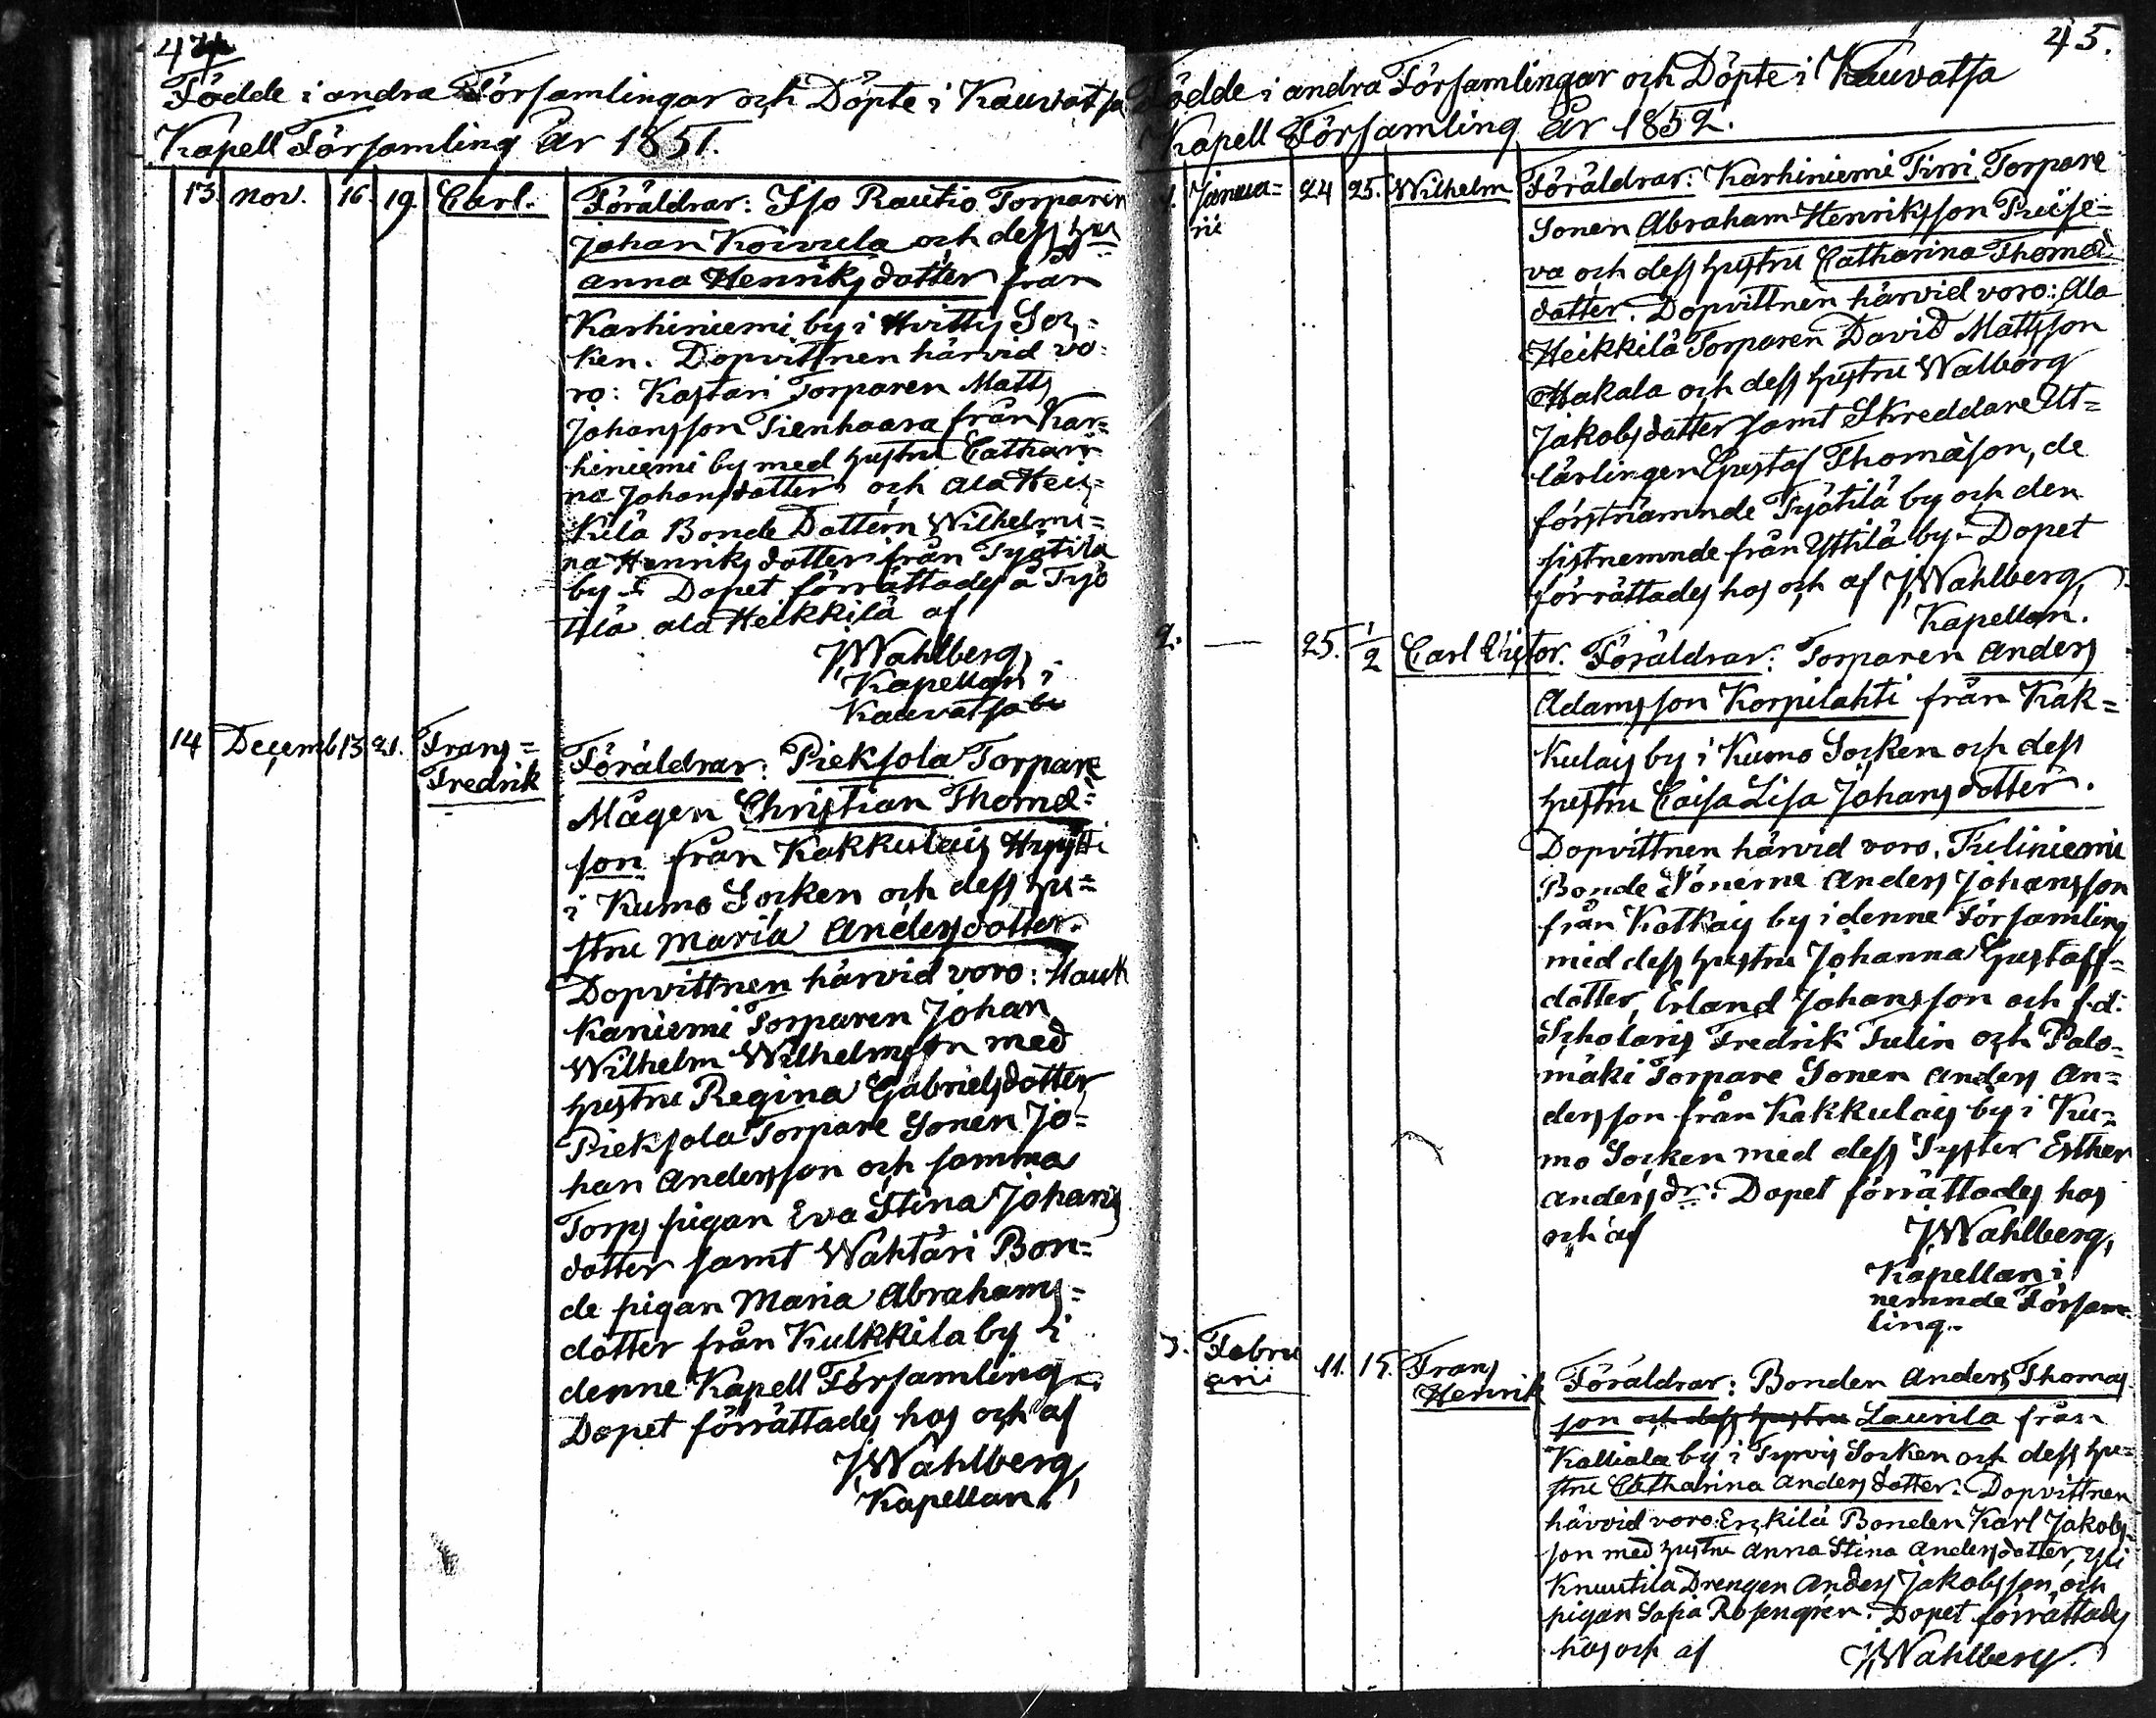 44
Födde i andra Församlingar och Döpte i Kauvatsa
Kapell Församling År 1851.
13. Nov. 16. 19. Carl. Föräldrar: Iso Rautio Torparen
Johan Koivula och dess hu
Anna Henriksdotter från
Karhiniemi by i Hvittis Soc=
ken. Dopvittnen härvid vo-
ro: Kastari Torparen Matts
Johansson Tienhaara från Kar=
hiniemi by med hustru Cathari
na Johansdotter och Ala Hei=
kilä Bonde Dottern Wilhelmi=
na Henriksdotter från Työtilä
by. Dopet förrättades å Työ
tilä Ala Heikkilä af
J. Wahlberg,
Kapellan i
Kauvatsa
14 Decemb 13 21. Frans=
Fredrik
Föräldrar: Pieksola Torpare
Mågen Christian Thomæ=
son från Kakkulais Hyytti
i Kumo Socken och dess hu=
stru Maria Andersdotter.
Dopvittnen härvid voro: Hauk
kaniemi Torparen Johan
Wilhelm Wilhelmsson med
hustru Regina Gabrielsdotter
Pieksola Torpare Sonen Jo=
han Andersson och samma
Torps pigan Eva Stina Johans
dotter samt Wahtari Bon=
de pigan Maria Abrahams=
dotter från Kulkkila by i
denne Kapell Församling.
Dopet förrättades hos och af
J. Wahlberg,
Kapellan.
45.
Födde i andra Församlingar och Döpte i Kauvatsa
Kapell Församling År 1852.
1. Janua=
rii
24 25. Wilhelm Föräldrar: Karhiniemi Tirri Torpare
Sonen Abraham Henriksson Priise=
va och dess hustru Catharina Thomæ
dotter. Dopvittnen härvid voro: Ala
Heikkilä Torparen David Mattsson
Hakala och dess hustru Walborg
Jakobsdotter samt Skreddare Ut=
lärlingen Gustaf Thomæson, de
förstnämnde Työtilä by och den
sistnemnde från Yttilä by. Dopet
förrättades hos och af J. Wahlberg,
Kapellan.
2. — 25. 1/2 Carl Victor. Föräldrar: Torparen Anders
Adamsson Korpilahti från Kak=
kulais by i Kumo Socken och dess
hustru Caisa Lisa Johansdotter.
Dopvittnen härvid voro. Tuliniemi
Bonde Sönerne Anders Johansson
från Katkais by i denne Församling
med dess hustru Johanna Gustafs=
dotter, Erland Johansson och f.d.
Scholaris Fredrik Tulin och Palo=
mäki Torpare Sonen Anders An=
dersson från Kakkulais by i Ku=
mo Socken med dess Syster Esther
Andersdr: Dopet förrättades hos
och af J. Wahlberg,
Kapellan i
nemnde Försam=
ling.
3. Febru
arii
11. 15. Frans
Henrik
Föräldrar: Bonden Anders Thomas
son och dess hustru Laurila från
Kalliala by i Tyrvis Socken och dess hu=
stru Catharina Andersdotter. Dopvittnen
härvid voro: Erkilä Bonden Karl Jakobs=
son med hustru Anna Stina Andersdotter, Yli
Knuutila Drengen Anders Jakobsson och
pigan Sofia Rosengrén. Dopet förrättades
hos och af J. Wahlberg.